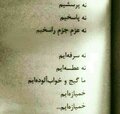 نه پرسشیم
نه پاسخیم
نه عزم جزم راسخیم
نه سرفه‌ایم
نه عطسه‌ایم
ما گیج و خواب‌آلوده‌ایم
خمیازه‌ایم
خمیازه‌ایم...